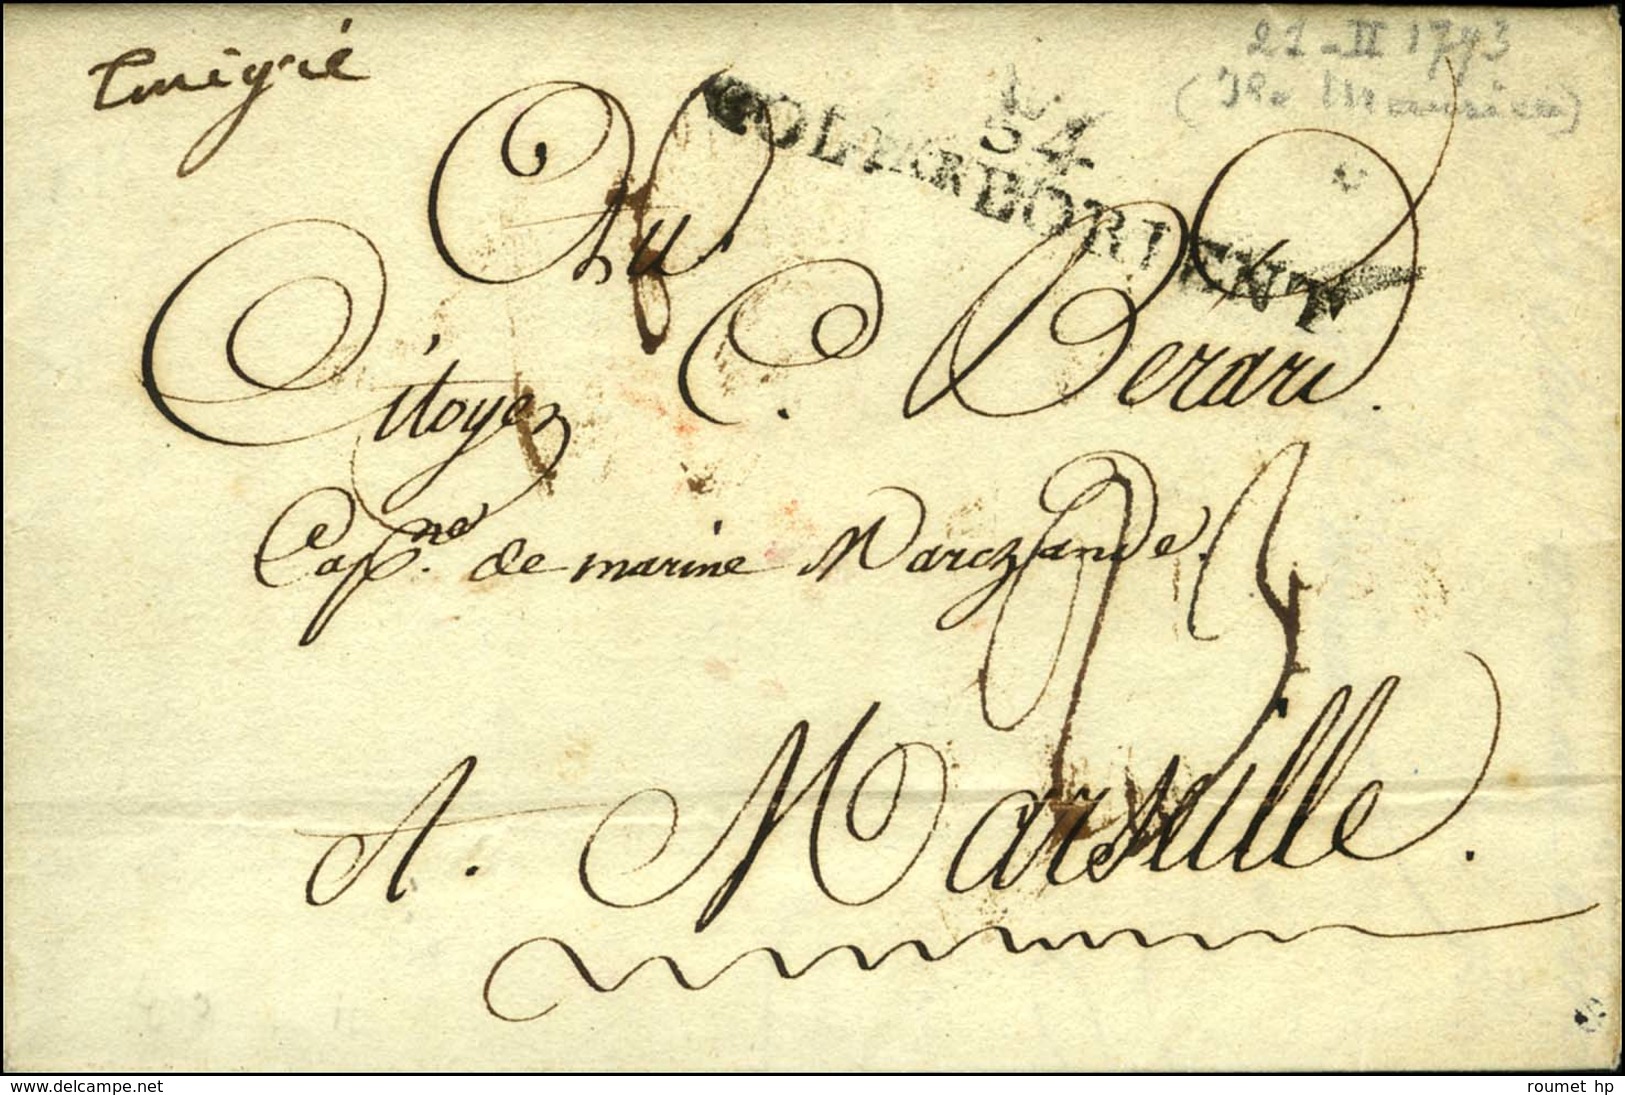 Emigré
21-II 1793
(Ile Maurice)
54
COL.PAR LORIENT
Au
Citoyen C. Berard.
Capne. de marine Marchande.
A. Marseille.
www.delcampe.net
roumet hp